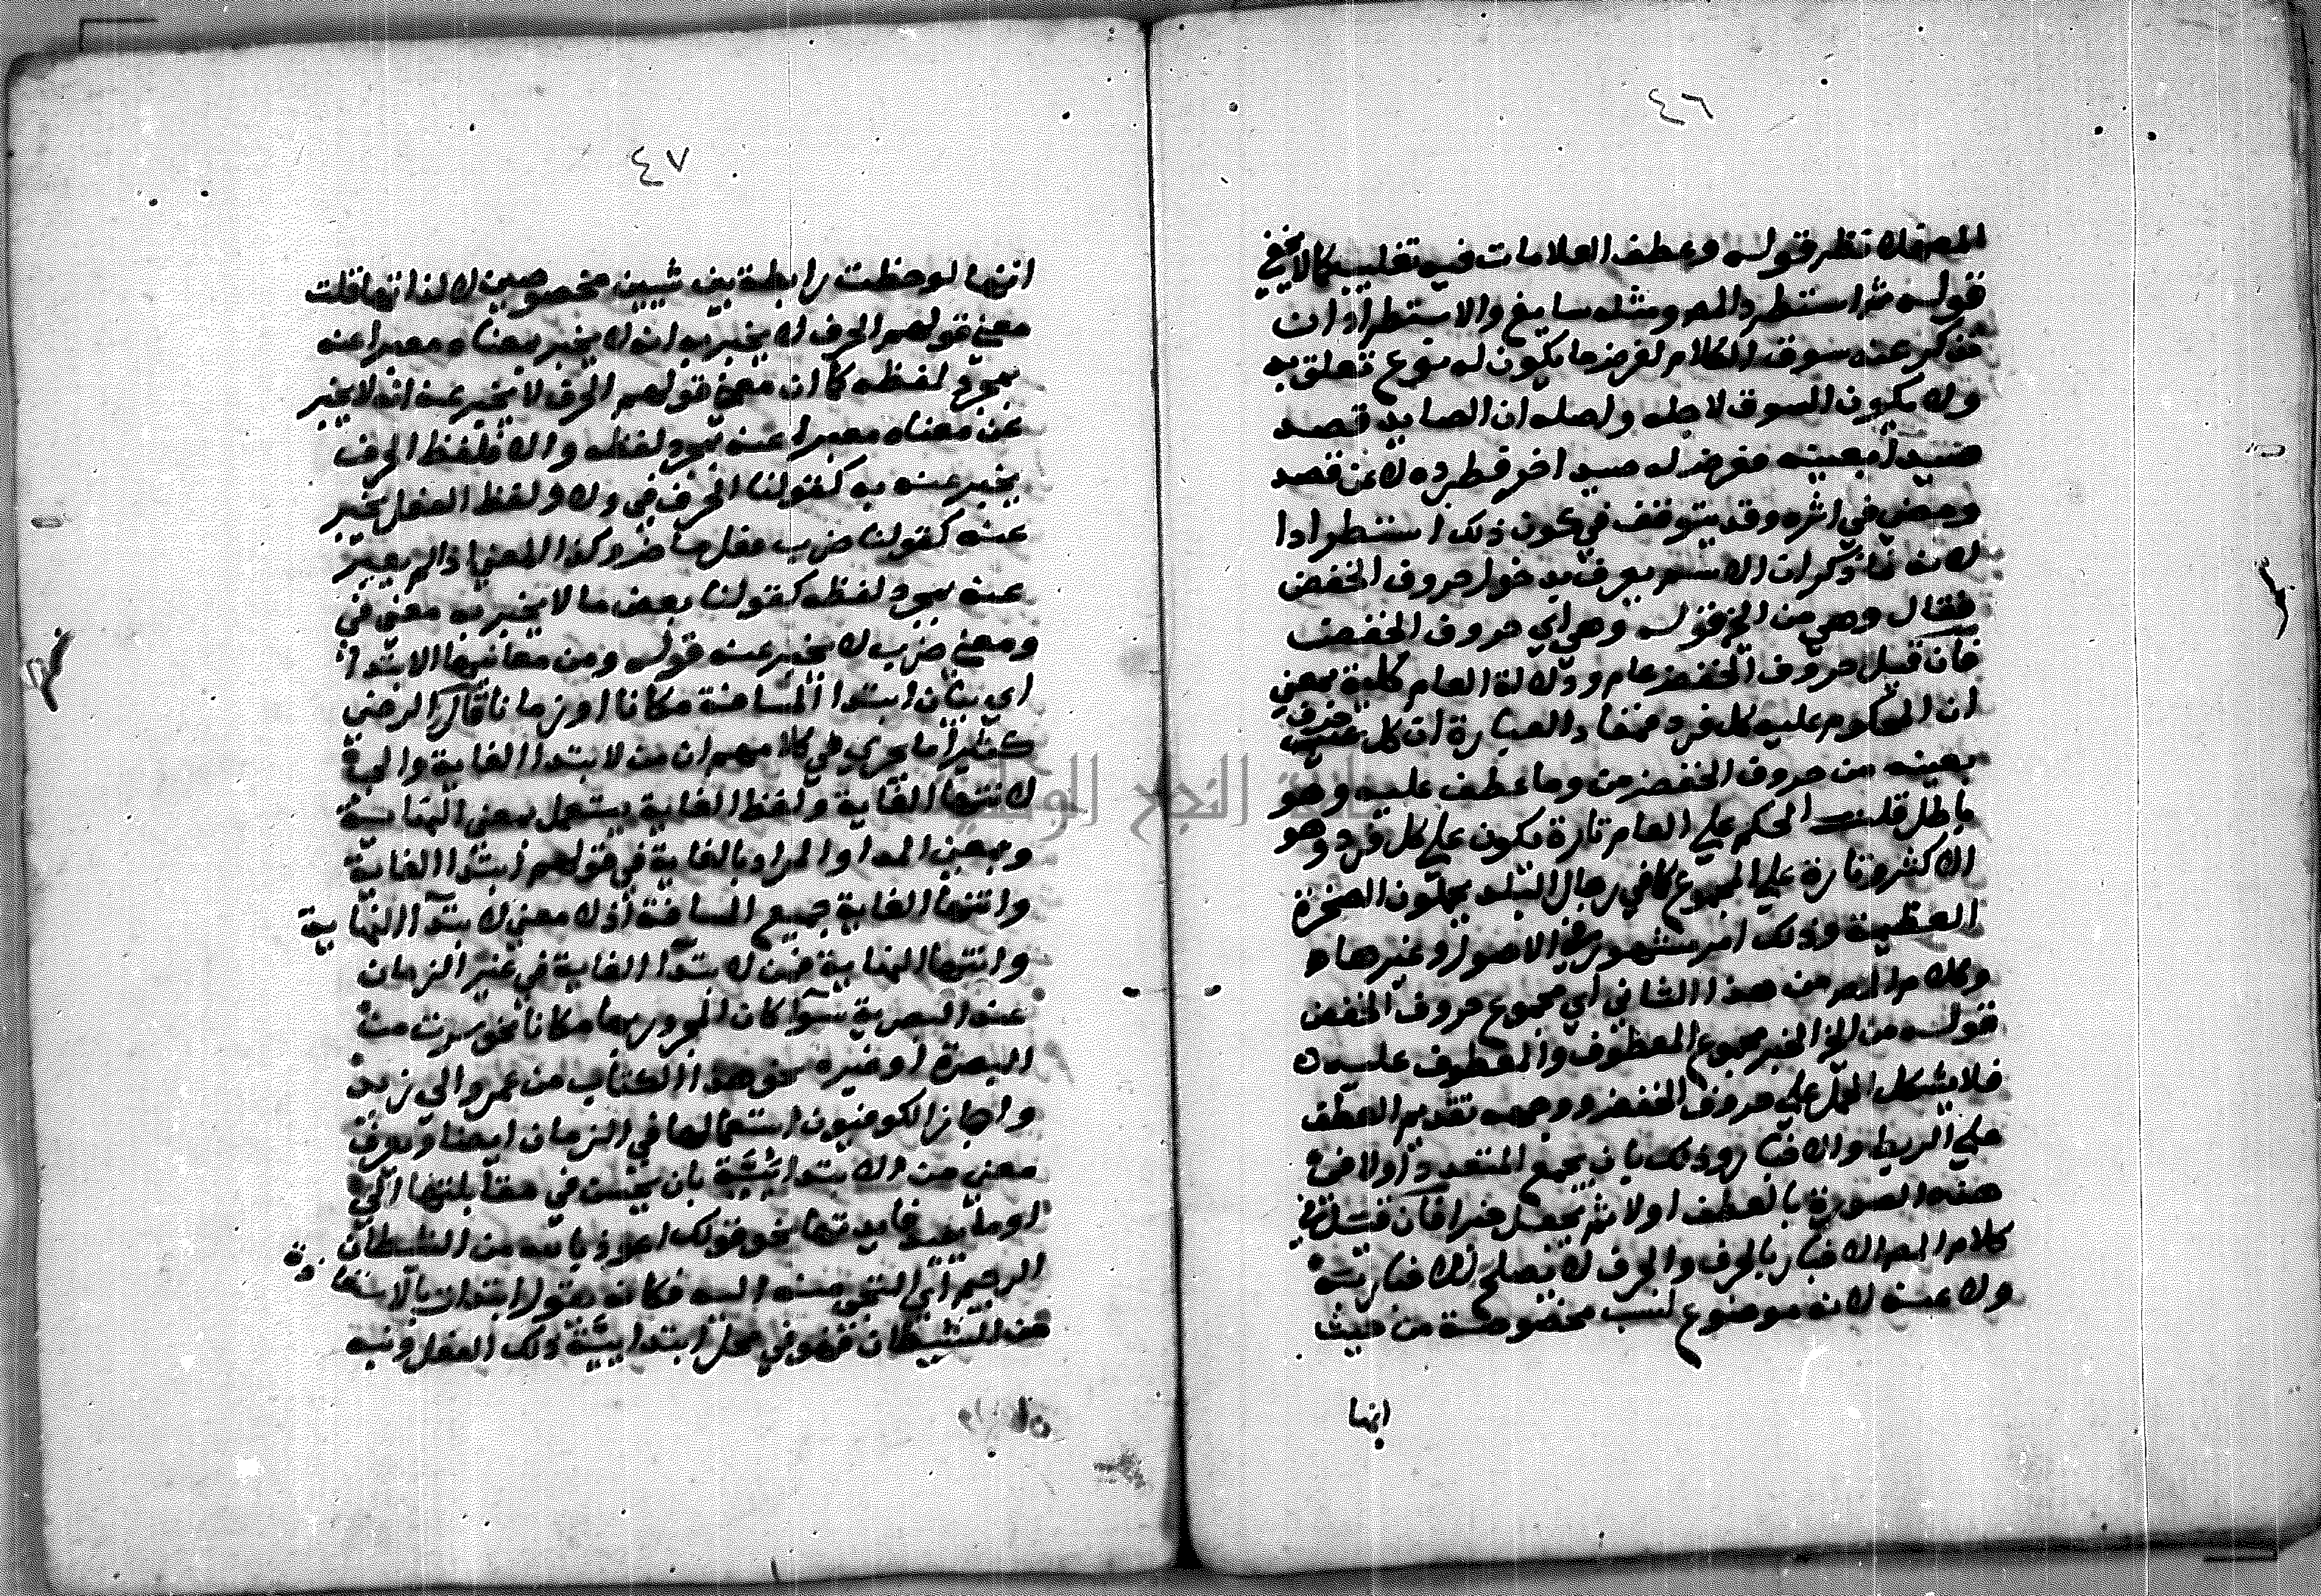 ٤٦
قوله وعطف العلامات فيه تغليب كما لا يخفى
قوله ثم استطرد المص ومثله سايغ والاستطراد ان
يذكر عند سوق الكلام لغرض ما يكون له نوع تعلق به
ولا يكون السوق لاجله واصله ان الصايد قصد
صيدا بعينه فعرض له صيد اخر فطرده لا عن قصد
ومضى في اثره وقد يتوقف في كون ذلك استطرادا
لانه لما ذكر ان الاسم يعرف بدخول حروف الخفض
فقال وهي من الخ قوله وهي اي حروف الخفض
فان قيل حروف الخفض عام ودلالة العام كلية بمعنى
ان المحكوم عليه كل فرد فمفاد العبارة ان كل حرف
بعينه من حروف الخفض من وما عطف عليه وهو
باطل قلت الحكم على العام تارة يكون على كل فرد وهو
الاكثر وتارة على المجموع كما في رجال البلد يحملون الصخرة
العظيمة وذلك امر مشهور في الاصول وغيرها
وكلام المص من هذا الثاني اي مجموع حروف الخفض
قوله من الخ الخبر مجموع المعطوف والمعطوف عليه
فلا يشكل الحمل على حروف الخفض ووجهه تقديم العطف
على الربط والاخبار وذلك بان يجمع المتعدد اولا في
هذه الصورة بالعطف اولا ثم يجعل خبرا فان قيل في
كلام المص الاخبار بالحرف والحرف لا يصلح للاخبار به
ولا عنه لانه موضوع لنسب مخصوصة من حيث
انها
٤٧
انها لوحظت رابطة بين شيين مخصوصين لا لذاتها قلت
معنى قولهم الحرف لا يخبر به انه لا يخبر بمعناه معبرا عنه
بمجرد لفظه كما ان معنى قولهم الحرف لا يخبر عنه انه لا يخبر
عن معناه معبرا عنه بمجرد لفظه والا فلفظ الحرف
يخبر عنه به كقولنا الحرف في ولا ولفظ الفعل يخبر
عنه كقولنا ضرب فعل ماض وكذا المعنى اذا لم يعبر
عنه بمجرد لفظه كقولنا بعض ما لا يخبر به معنى في
ومعنى ضرب لا يخبر عنه قوله ومن معانيها الابتدا
اي بيان ابتدا المسافة مكانا او زمانا قال الرضي
كثيرا ما يجري في كلامهم ان من لابتدا الغاية والى
لانتها الغاية ولفظ الغاية يستعمل بمعنى النهاية
وبمعنى المدا والمراد بالغاية في قولهم ابتدا الغاية
وانتها الغاية جميع المسافة اذ لا معنى لابتدا النهاية
وانتها النهاية فمن لابتدا الغاية في غير الزمان
عند البصرية سوا كان المجرور بها مكانا نحو سرت من
البصرة او غيره نحو هذا الكتاب من عمرو الى زيد
واجاز الكوفيون استعمالها في الزمان ايضا وتعرف
معنى من الابتدائية بان يحسن في مقابلتها الى
او ما يفيد فايدتها نحو قولك اعوذ بالله من الشيطان
الرجيم اي التجي منه اليه فكانه يقول ابتدات بالاستعاذة
من الشيطان فهو في محل ابتدائية ذلك الفعل ونبه